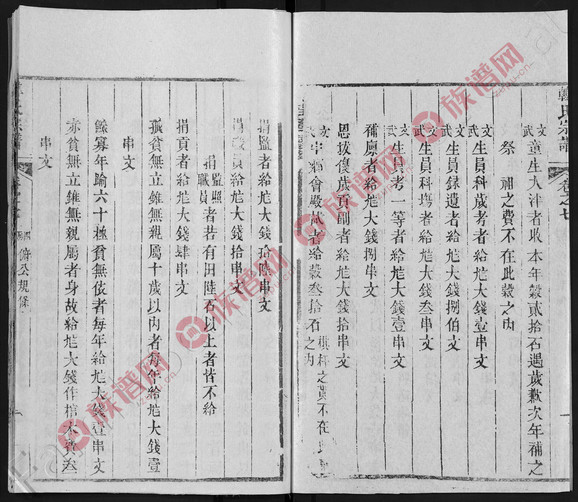 韓氏宗譜
卷之七
文武童生入泮者收本年穀貳拾石遇歲歉次年補之
祭補之費不在此穀之內
文武生員科歲考者給尨大錢壹串文
文武生員錄遺者給尨大錢捌伯文
文武生員科塲者給尨大錢叁串文
文武生員考一等者給尨大錢壹串文
補廪者給尨大錢捌串文
恩拔優歲貢副者給尨大錢拾串文
文武字酒會殿試者給穀叁拾石之內
捐監者給尨大錢拾陸串文
捐職員給尨大錢拾串文
捐監職員者若有田陸石以上者皆不給
捐貢者給尨大錢肆串文
孤貧無立錐無親屬十歲以內者每年給尨大錢壹
串文
鰥寡年踰六十極貧無依者每年給尨大錢壹串文
赤貧無立錐無親屬者身故給尨大錢作棺木費叁
串文
規條
族谱网
族谱网
族谱网